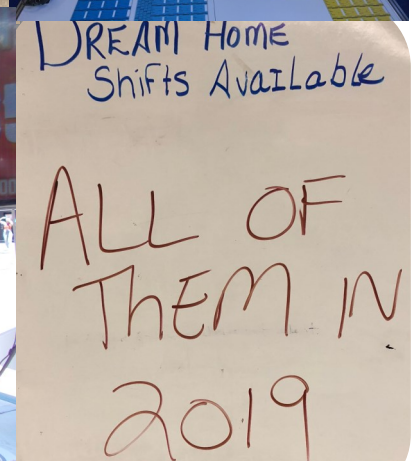 DREAM HOME
Shifts AvaILabLe
ALL OF
ThEM IN
2019